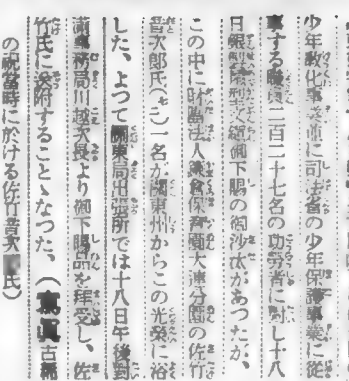 少年教化事業並に司法省の少年保護事業に從
事する職員二百二十七名の功勞者に對し十八
日銀盃陸刑文鎭御下賜の御沙汰があつたが、
この中に財團法人鎌倉保育園大連分園の佐竹
音次郎氏(七二)一名が關東州からこの光榮に浴
した、よつて關東局出張所では十八日午後對
滿事務局川越次長より御下賜品を拜受し、佐
竹氏に送附することゝなつた、(寫眞古稀
の祝當時に於ける佐竹音次郎氏)